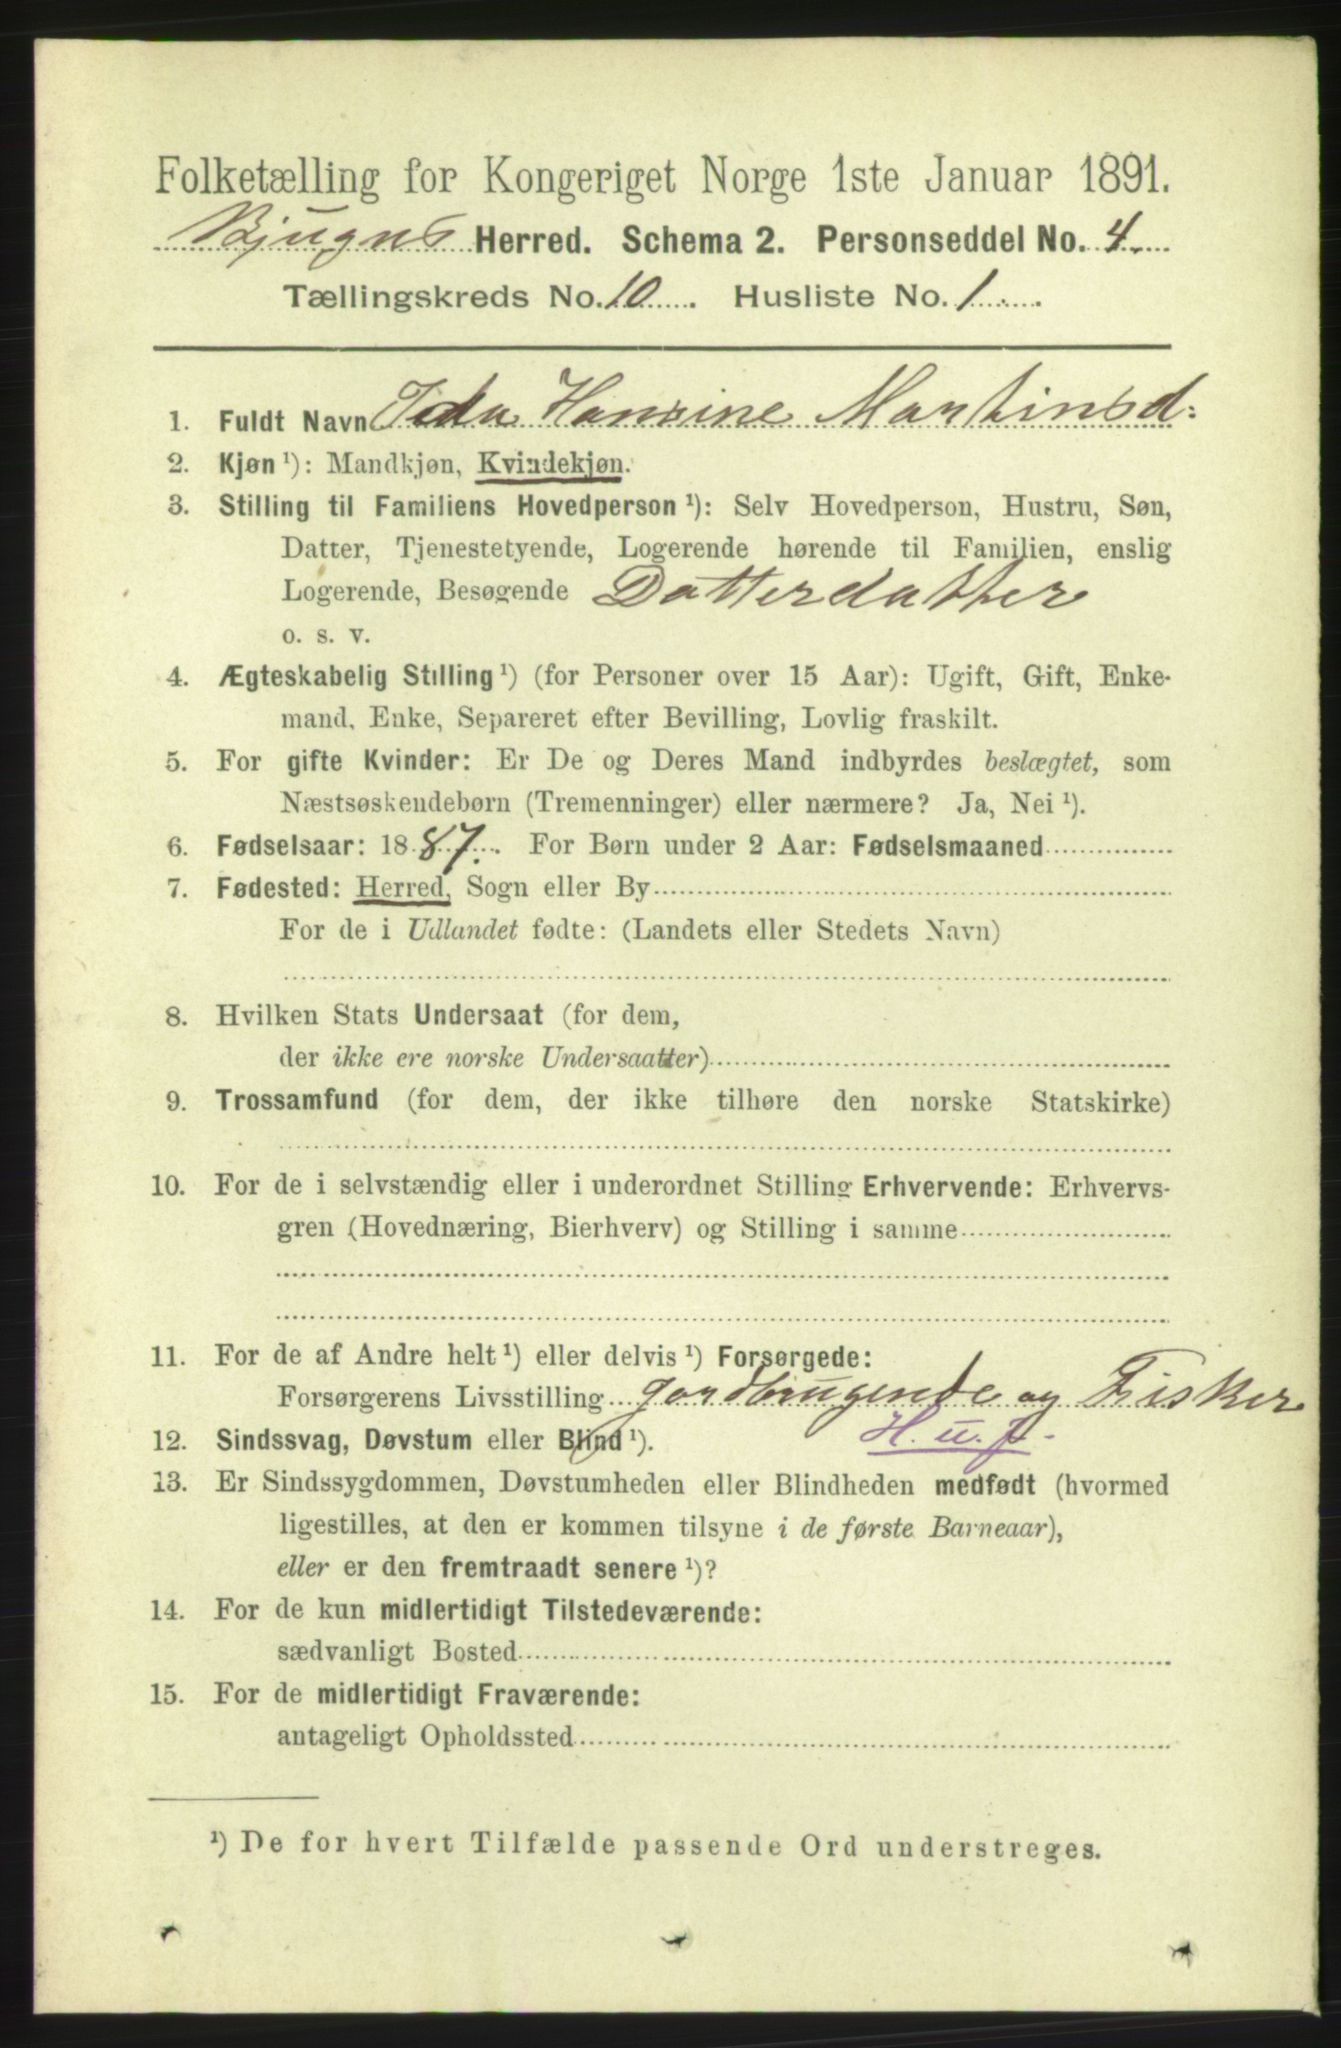 Folketælling for Kongeriget Norge 1ste Januar 1891.
Bjugns Herred. Schema 2. Personseddel No. 4
Tællingskreds No. 10. Husliste No. 1
1. Fuldt Navn Ida Hansine Martinsd:
2. Kjøn ¹): Mandkjøn, Kvindekjøn.
3. Stilling til Familiens Hovedperson ¹): Selv Hovedperson, Hustru, Søn,
Datter, Tjenestetyende, Logerende hørende til Familien, enslig
Logerende, Besøgende Datterdatter
o. s. v.
4. Ægteskabelig Stilling ¹) (for Personer over 15 Aar): Ugift, Gift, Enke-
mand, Enke, Separeret efter Bevilling, Lovlig fraskilt.
5. For gifte Kvinder: Er De og Deres Mand indbyrdes beslægtet, som
Næstsøskendebørn (Tremenninger) eller nærmere? Ja, Nei ¹).
6. Fødselsaar: 1887. For Børn under 2 Aar: Fødselsmaaned
7. Fødested: Herred, Sogn eller By
For de i Udlandet fødte: (Landets eller Stedets Navn)
8. Hvilken Stats Undersaat (for dem,
der ikke ere norske Undersaatter)
9. Trossamfund (for dem, der ikke tilhøre den norske Statskirke)
10. For de i selvstændig eller i underordnet Stilling Erhvervende: Erhvervs-
gren (Hovednæring, Bierhverv) og Stilling i samme
11. For de af Andre helt ¹) eller delvis ¹) Forsørgede:
Forsørgerens Livsstilling gardbrugende og Fisker
12. Sindssvag, Døvstum eller Blind ¹). H. u. f.
13. Er Sindssygdommen, Døvstumheden eller Blindheden medfødt (hvormed
ligestilles, at den er kommen tilsyne i de første Barneaar),
eller er den fremtraadt senere ¹)?
14. For de kun midlertidigt Tilstedeværende:
sædvanligt Bosted
15. For de midlertidigt Fraværende:
antageligt Opholdssted
¹) De for hvert Tilfælde passende Ord understreges.